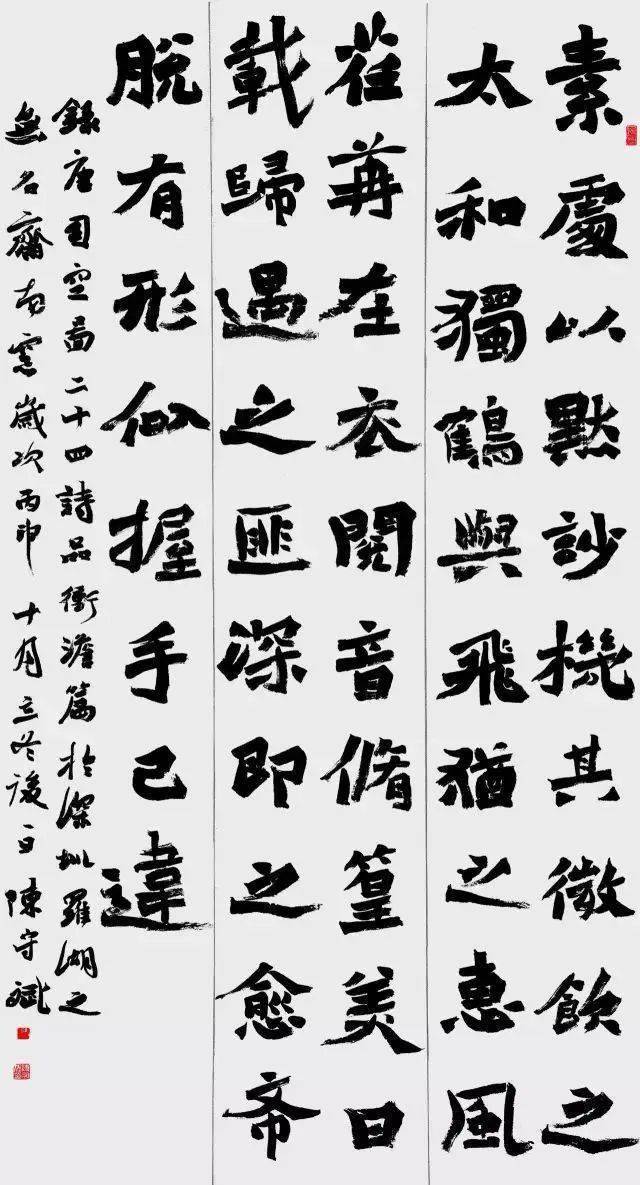 素處以默訬機其微飲之
太和獨鶴與飛猶之惠風
荏苒在衣閱音脩篁美曰
載歸遇之匪深即之愈希
脫有形似握手已違
錄唐司空圖二十四詩品衝澹篇於深圳羅湖之
無名齋南窗歲次丙申十月立冬後一日陳守斌